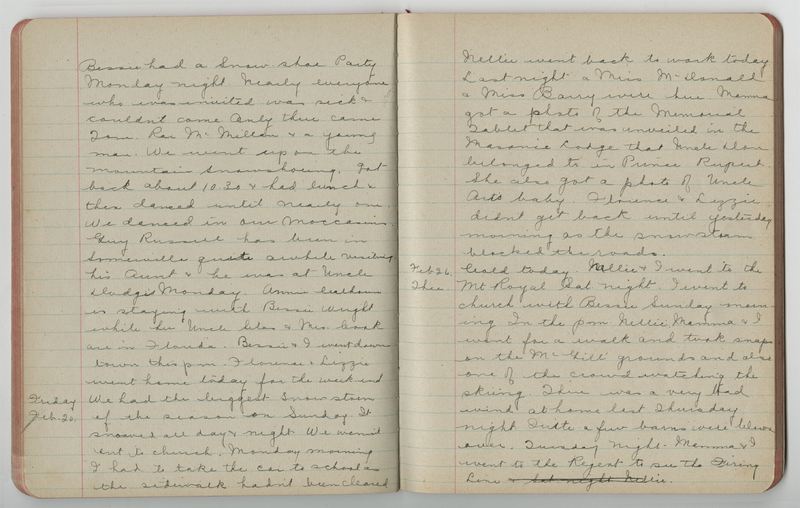 Bessie had a Snow shoe Party
Monday night Nearly everyone
who was invited was sick &
couldnt come Only three came
Tom. Rae Mc Millan & a young
man. We went up on the
mountain snowshoeing. Got
back about 10.30 & had lunch &
then danced until nearly one.
We danced in our Moccasins.
Guy Russell has been in
Somerville quite awhile visiting
his Aunt & he was at Uncle
Monday. Annie
is staying with Bessie Wright
while her Uncle & Mrs. Cook
are in Florida. Bessie & I went down
town this pm. Florence & Lizzie
went home today for the week end
Friday We had the biggest Snow storm
Feb. 20. of the season on Sunday. It
snowed all day & night We werent
out to church. Monday morning
I had to take the car to school as
the sidewalk hadn't been cleared
Nellie went back to work today
Last night a Miss McDonald
& Miss Barry were here Mamma
got a photo of the Memorial
Tablet that was unveiled in the
Masonic Lodge that Uncle Dan
belonged to in Prince Rupert.
She also got a photo of Uncle
Arts baby. Florence & Lizzie
didnt get back until yesterday
morning as the snowstorm
blocked the roads.
Feb 26. Cold today. Nellie & I went to the
Thur. Mt Royal Sat night. I went to
church with Bessie Sunday morn-
ing In the pm Nellie Mamma & I
went for a walk and took snaps
on the Mc Gill grounds and also
one of the crowd watching the
skiing. There was a very bad
wind at home last Thursday
night Quite a few barns were blown
over. Tuesday night Mamma & I
went to the Regent to see the Firing
Line & Sat night Nellie.